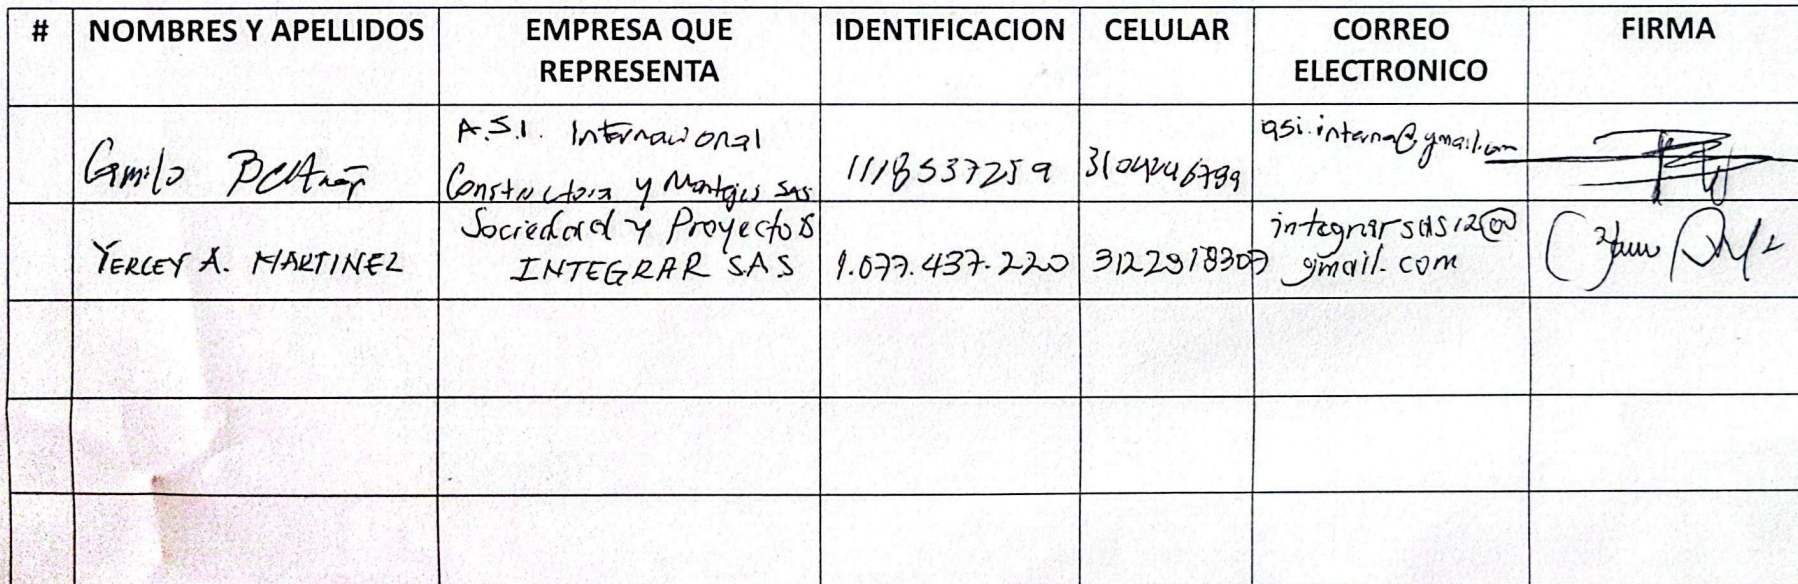 # NOMBRES Y APELLIDOS EMPRESA QUE REPRESENTA IDENTIFICACION CELULAR CORREO ELECTRONICO FIRMA
Camilo
A.S.I. Internacional
Constructora y Montajes SAS
1118537259
asi.interna@gmail.com
YERLEY A. MARTINEZ
Sociedad y Proyectos
INTEGRAR SAS
1.077.437.220
3122918307
integrarsas12@
gmail.com